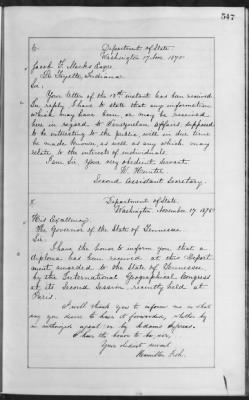 547
Department of State
Washington 17 Nov. 1875
Jacob F. Marks Esqre
La Fayette, Indiana
Sir:
Your letter of the 13th instant has been received.
In reply I have to state that any information
which may have been, or may be received
here in regard to Venezuelan affairs, supposed
to be interesting to the public, will in due time
be made known as well as any which may
relate to the interest of individuals.
I am Sir, Your very obedient servant.
W. Hunter
Second Assistant Secretary.
Department of State.
Washington November 17, 1875
His Excellency,
The Governor of the State of Tennessee
Sir:
I have the honor to inform you that a
diploma has been received at this Depart-
ment, awarded to the State of Tennessee,
by the International Geographical Congress
at its Second Session, recently held at
Paris.
I will thank you to inform me in what
way you desire to have it forwarded, whether by
an authorized agent or by Adams Express.
I have the honor to be, sir,
Your obedient servant
Hamilton Fish.